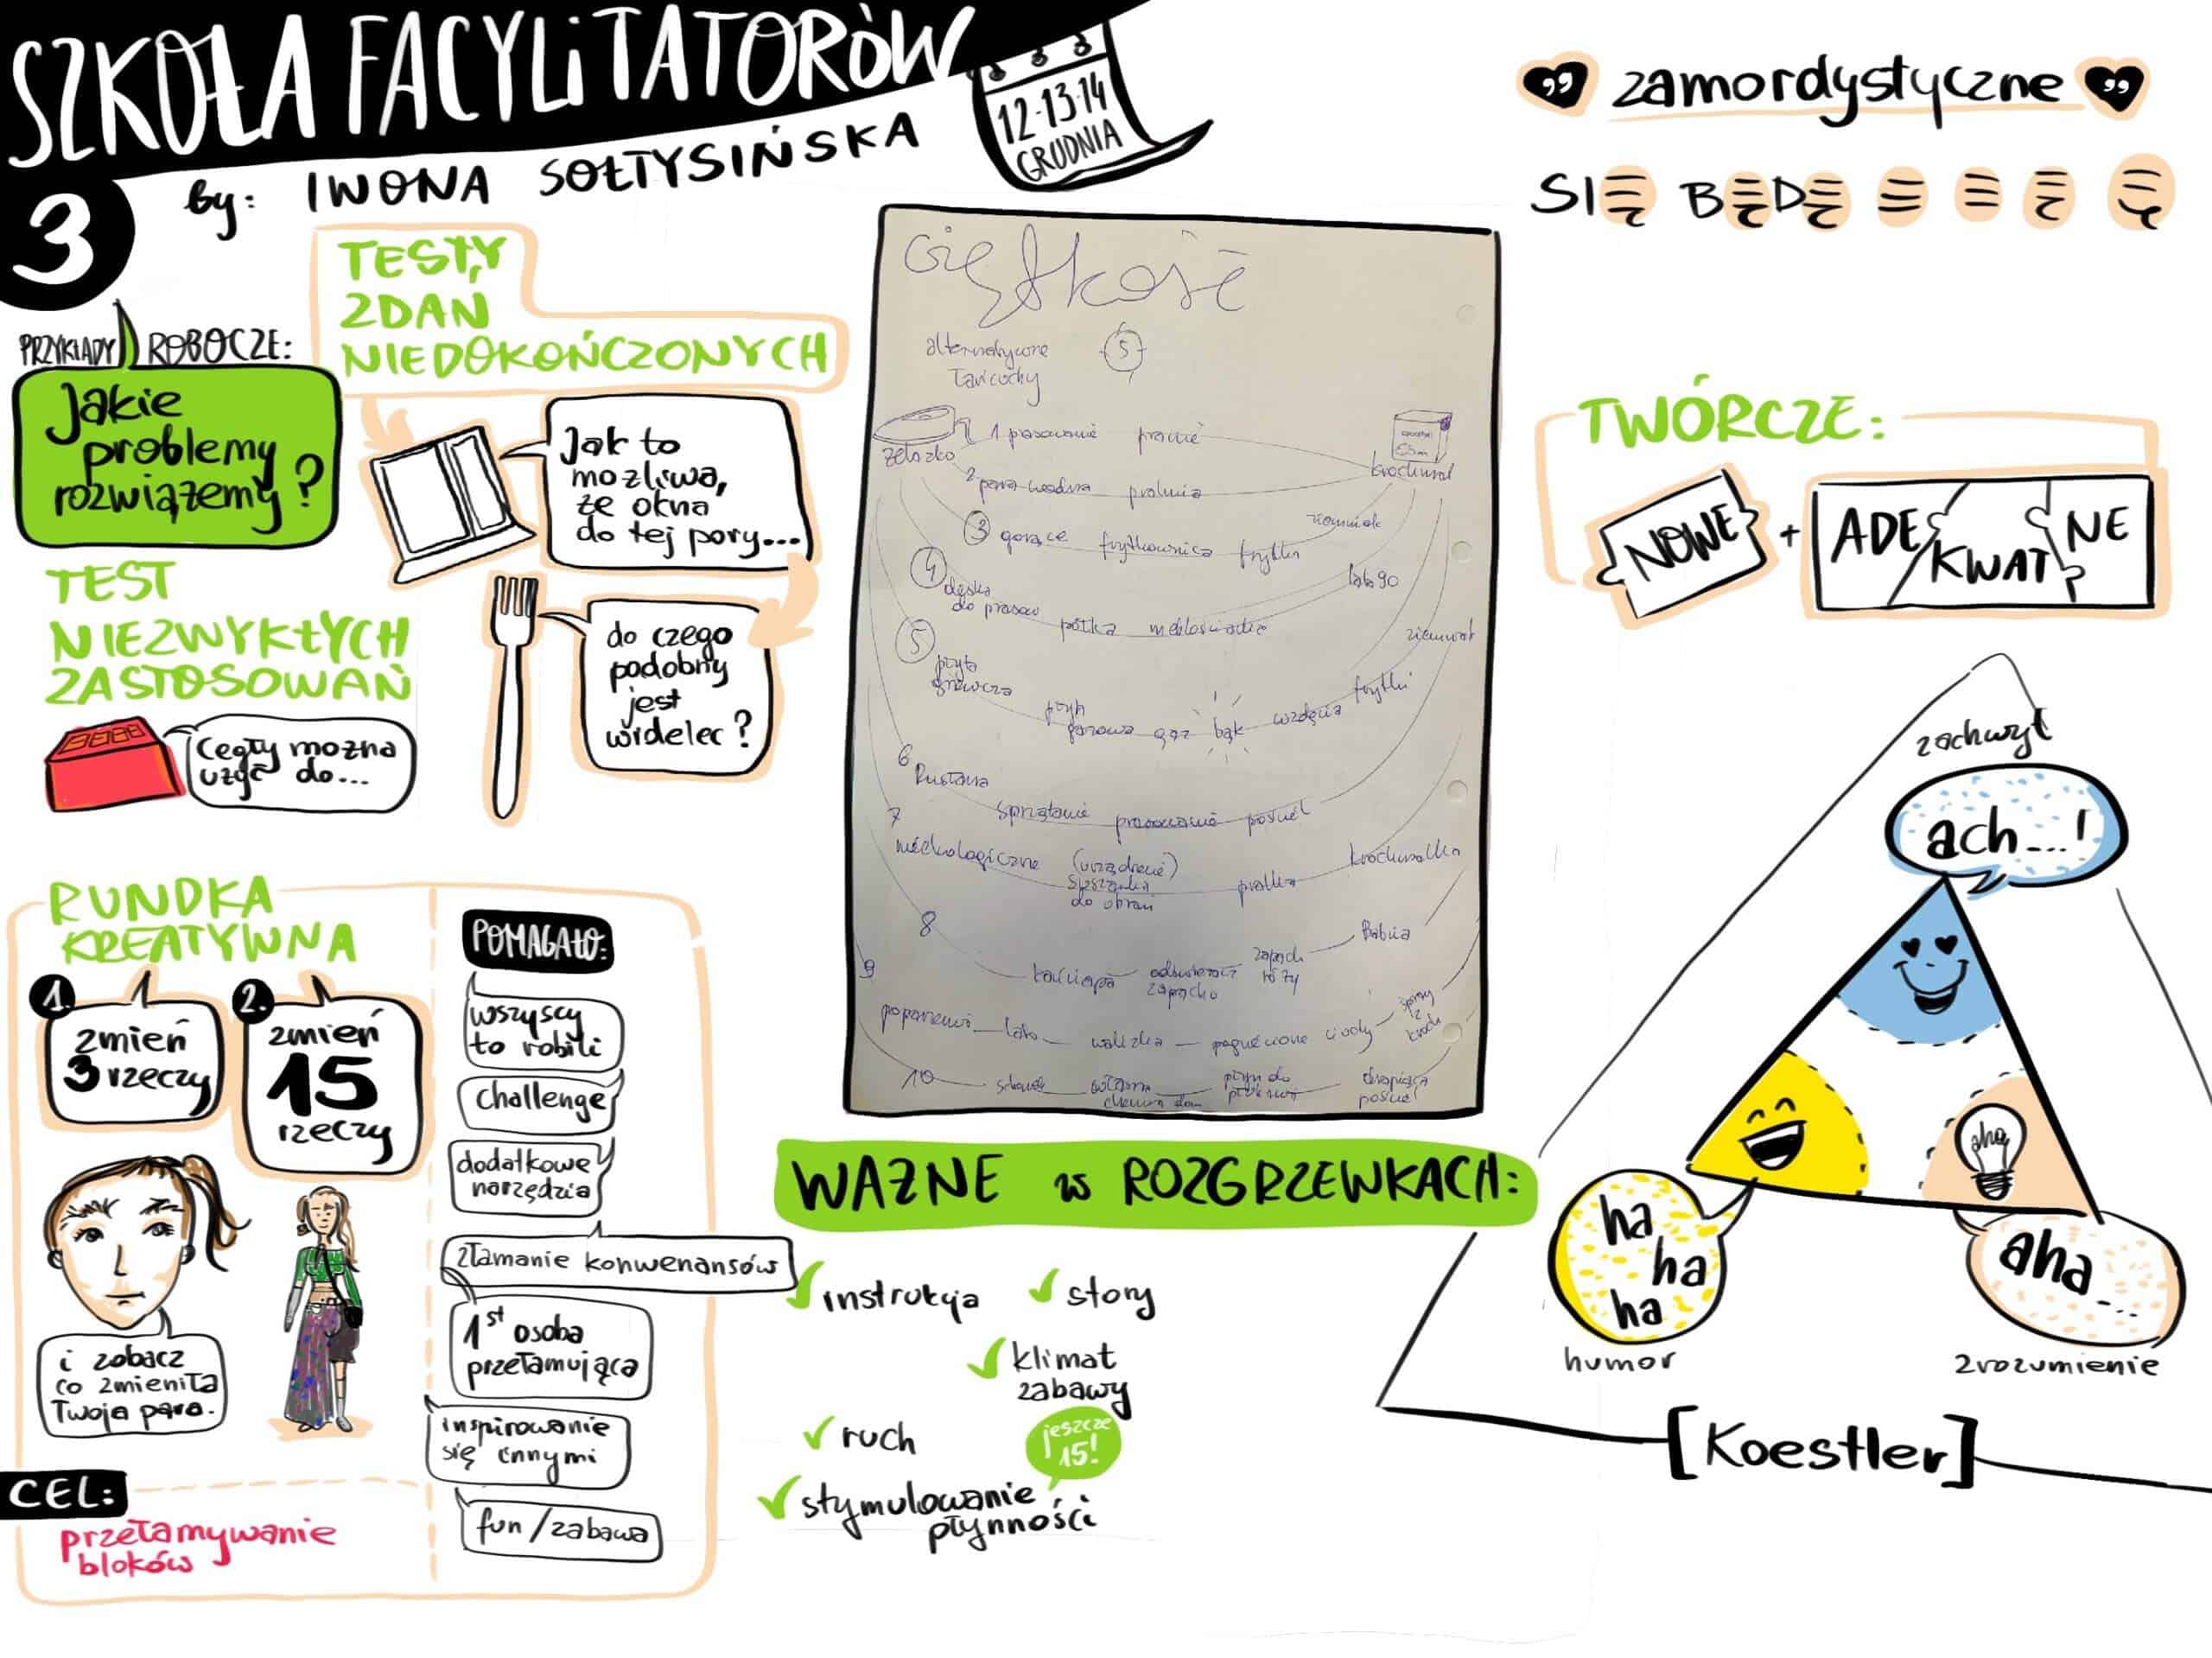 SZKOŁA FACYLITATORÓW
12-13-14
GRUDNIA
3
by: IWONA SOŁTYSIŃSKA
PRZYKŁADY ROBOCZE:
Jakie
problemy
rozwiążemy?
TESTY
ZDAŃ
NIEDOKOŃCZONYCH
Jak to
możliwa,
że okna
do tej pory...
do czego
podobny
jest
widelec?
TEST
NIEZWYKŁYCH
ZASTOSOWAŃ
Cegły można
użyć do...
RUNDKA
KREATYWNA
1.
zmień
3 rzeczy
2.
zmień
15
rzeczy
i zobacz
co zmieniła
Twoja para.
CEL:
przełamywanie
bloków
POMAGAŁO:
wszyscy
to robili
challenge
dodatkowe
narzędzia
złamanie konwenansów
1st osoba
przełamująca
inspirowanie
się innymi
fun/zabawa
Giętkość
alternatywne
łańcuchy
5
żelazko
krochmal
1 prasowanie pranie
2 para wodna pralnia
3 gorące frytkownica frytki ziemniak
4 deska
do prasow półka lata 90
5 płyta
grzewcza
płyta
gazowa gaz bąk wzdęcia frytki
6
sprzątanie prasowanie pościel
7
(urządzenie)
do ubrań
pralka krochmalka
8
odświeżacz
zapach
róży
Babcia
9
lato walizka
10
płyn do
pościel
WAŻNE w ROZGRZEWKACH:
instrukcja
story
klimat
zabawy
ruch
jeszcze
15!
stymulowanie
płynności
zamordystyczne
SIĘ BĘDĘ
TWÓRCZE:
NOWE + ADEKWATNE
zachwyt
ach...!
aha
ha
ha
ha
humor
aha...
zrozumienie
[Koestler]